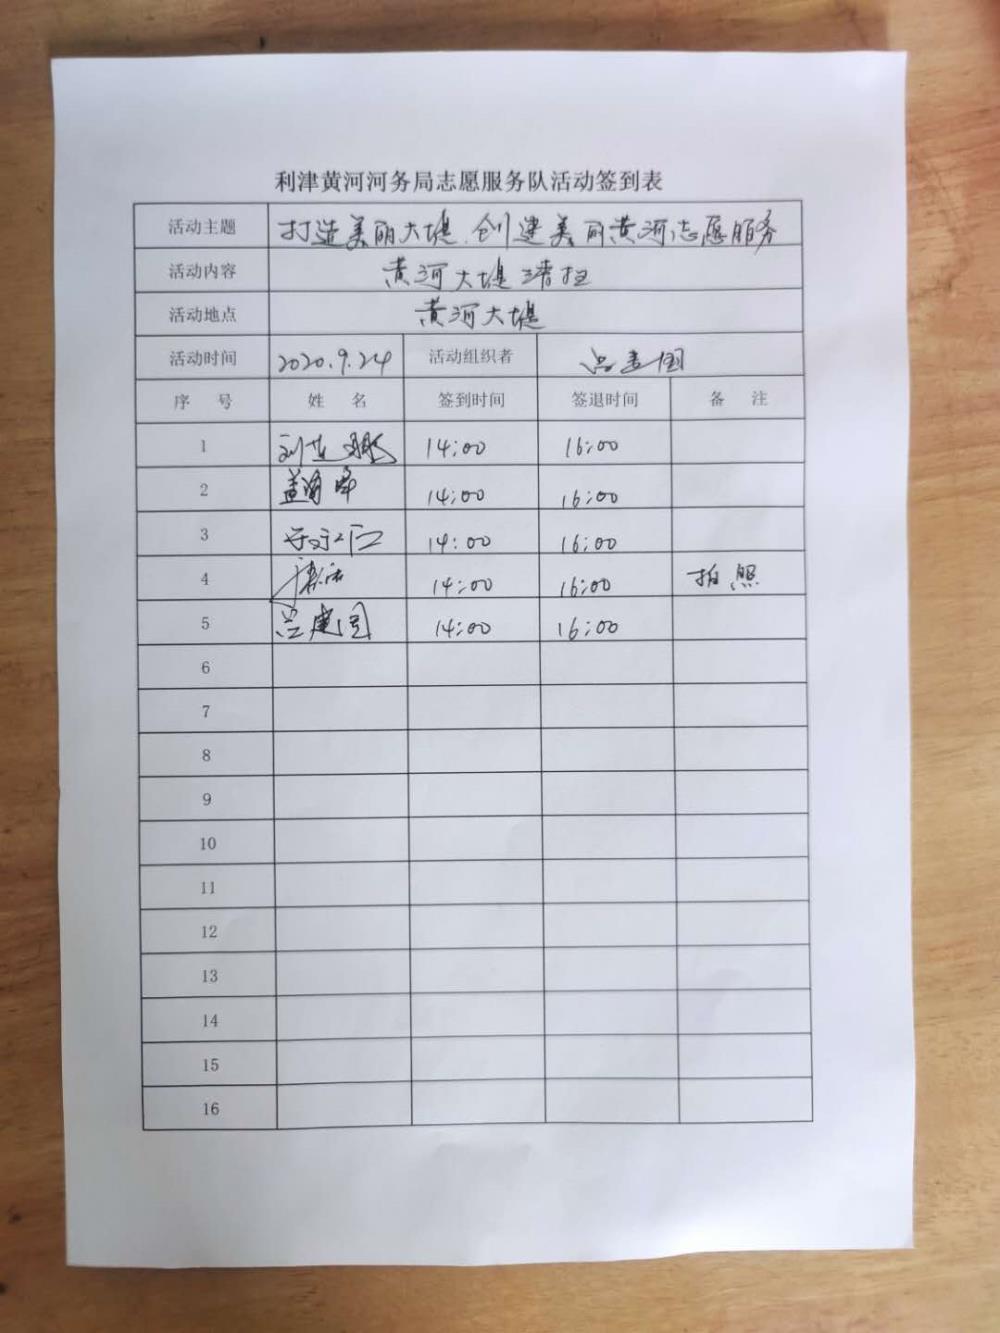 利津黄河河务局志愿服务队活动签到表
活动主题 打造美丽大堤.创建美丽黄河志愿服务
活动内容 黄河大堤清扫
活动地点 黄河大堤
活动时间 2020.9.24 活动组织者
序 号 姓 名 签到时间 签退时间 备 注
1 14:00 16:00
2 14:00 16:00
3 14:00 16:00
4 14:00 16:00 拍照
5 吕建国 14:00 16:00
6
7
8
9
10
11
12
13
14
15
16